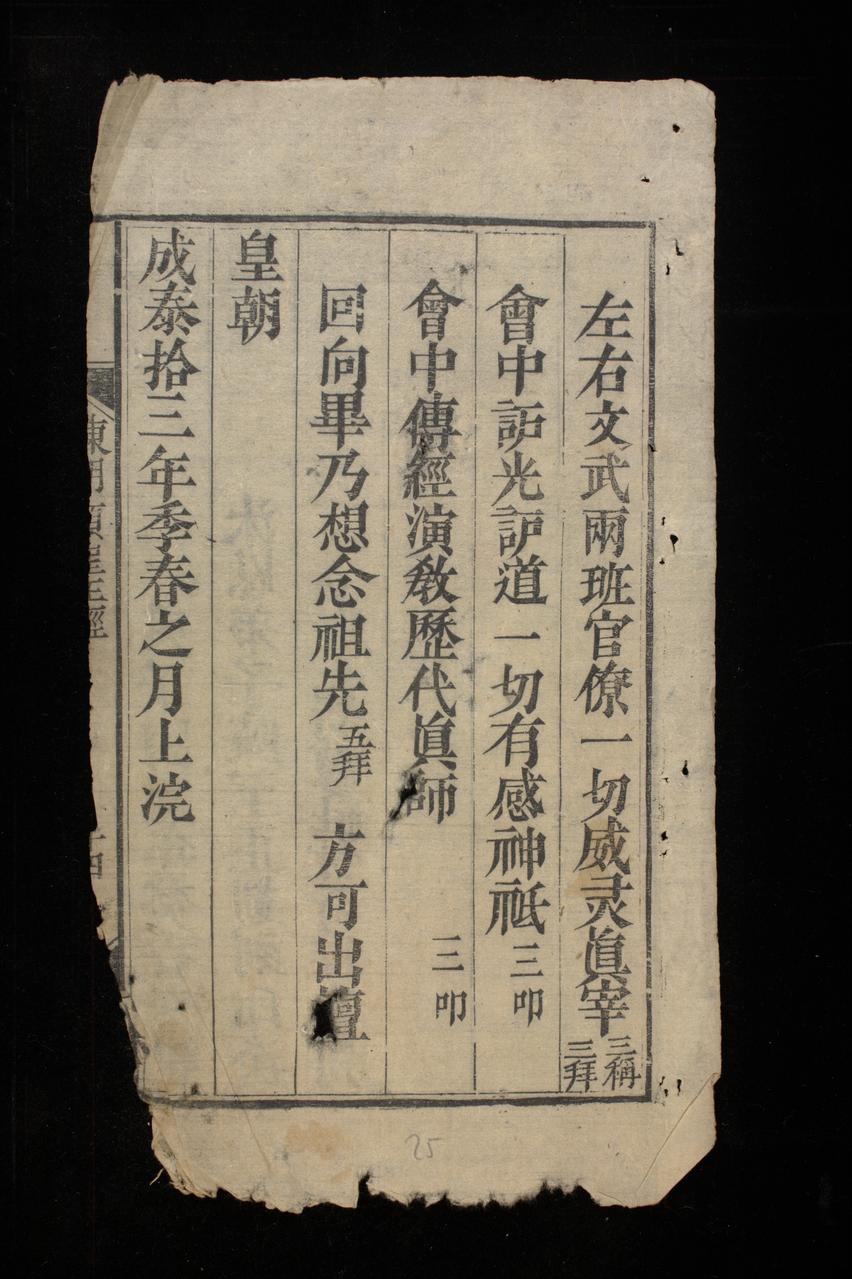 左右文武兩班官僚一切威灵眞宰三稱三拜
會中䛠光䛥道一切有感神祗三叩
會中傳經演教歷代眞師 三叩
回向畢乃想念祖先五拜 方可出壇
皇朝
成泰拾三年季春之月上浣
經
25